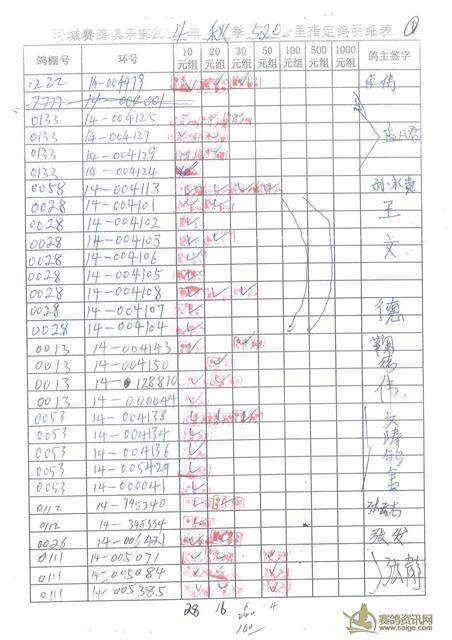 阿城赛鸽俱乐部2014年秋季520公里指定鸽明细表
①
鸽棚号 环号 10元组 20元组 30元组 50元组 100元组 300元组 500元组 1000元组 鸽主签字
0222 14-004479 ✓ ✓ ✓
7777 14-004001
0133 14-004125 ✓ ✓ ✓
0133 14-004127 ✓ ✓
0133 14-004129 ✓ ✓
0133 14-004124
0058 14-004113 ✓ ✓ ✓ ✓
0028 14-004101 ✓ ✓ 王
0028 14-004102 ✓
0028 14-004103 ✓ ✓ ✓ 文
0028 14-004106 ✓
0028 14-004105 ✓
0028 14-004108 ✓ ✓
0028 14-004107 ✓ 德
0028 14-004104 ✓
0013 14-004143 ✓ ✓
0013 14-004150 ✓
0013 14-128810 ✓ ✓ 伟
0013 14-000044 ✓
0053 14-004138 ✓ ✓ ✓ ✓
0053 14-004134 ✓
0053 14-004136 ✓
0053 14-005429 ✓
0053 14-000041 ✓
0112 14-345240 ✓ ✓
0112 14-345334 ✓
0026 14-001421 ✓ ✓ 张发
0111 14-005071 ✓ ✓ ✓
0111 14-005084 ✓ ✓ ✓ 张静
0111 14-005385 ✓ ✓ ✓
28 16 6 4
160
赛鸽资讯网
www.saige.com